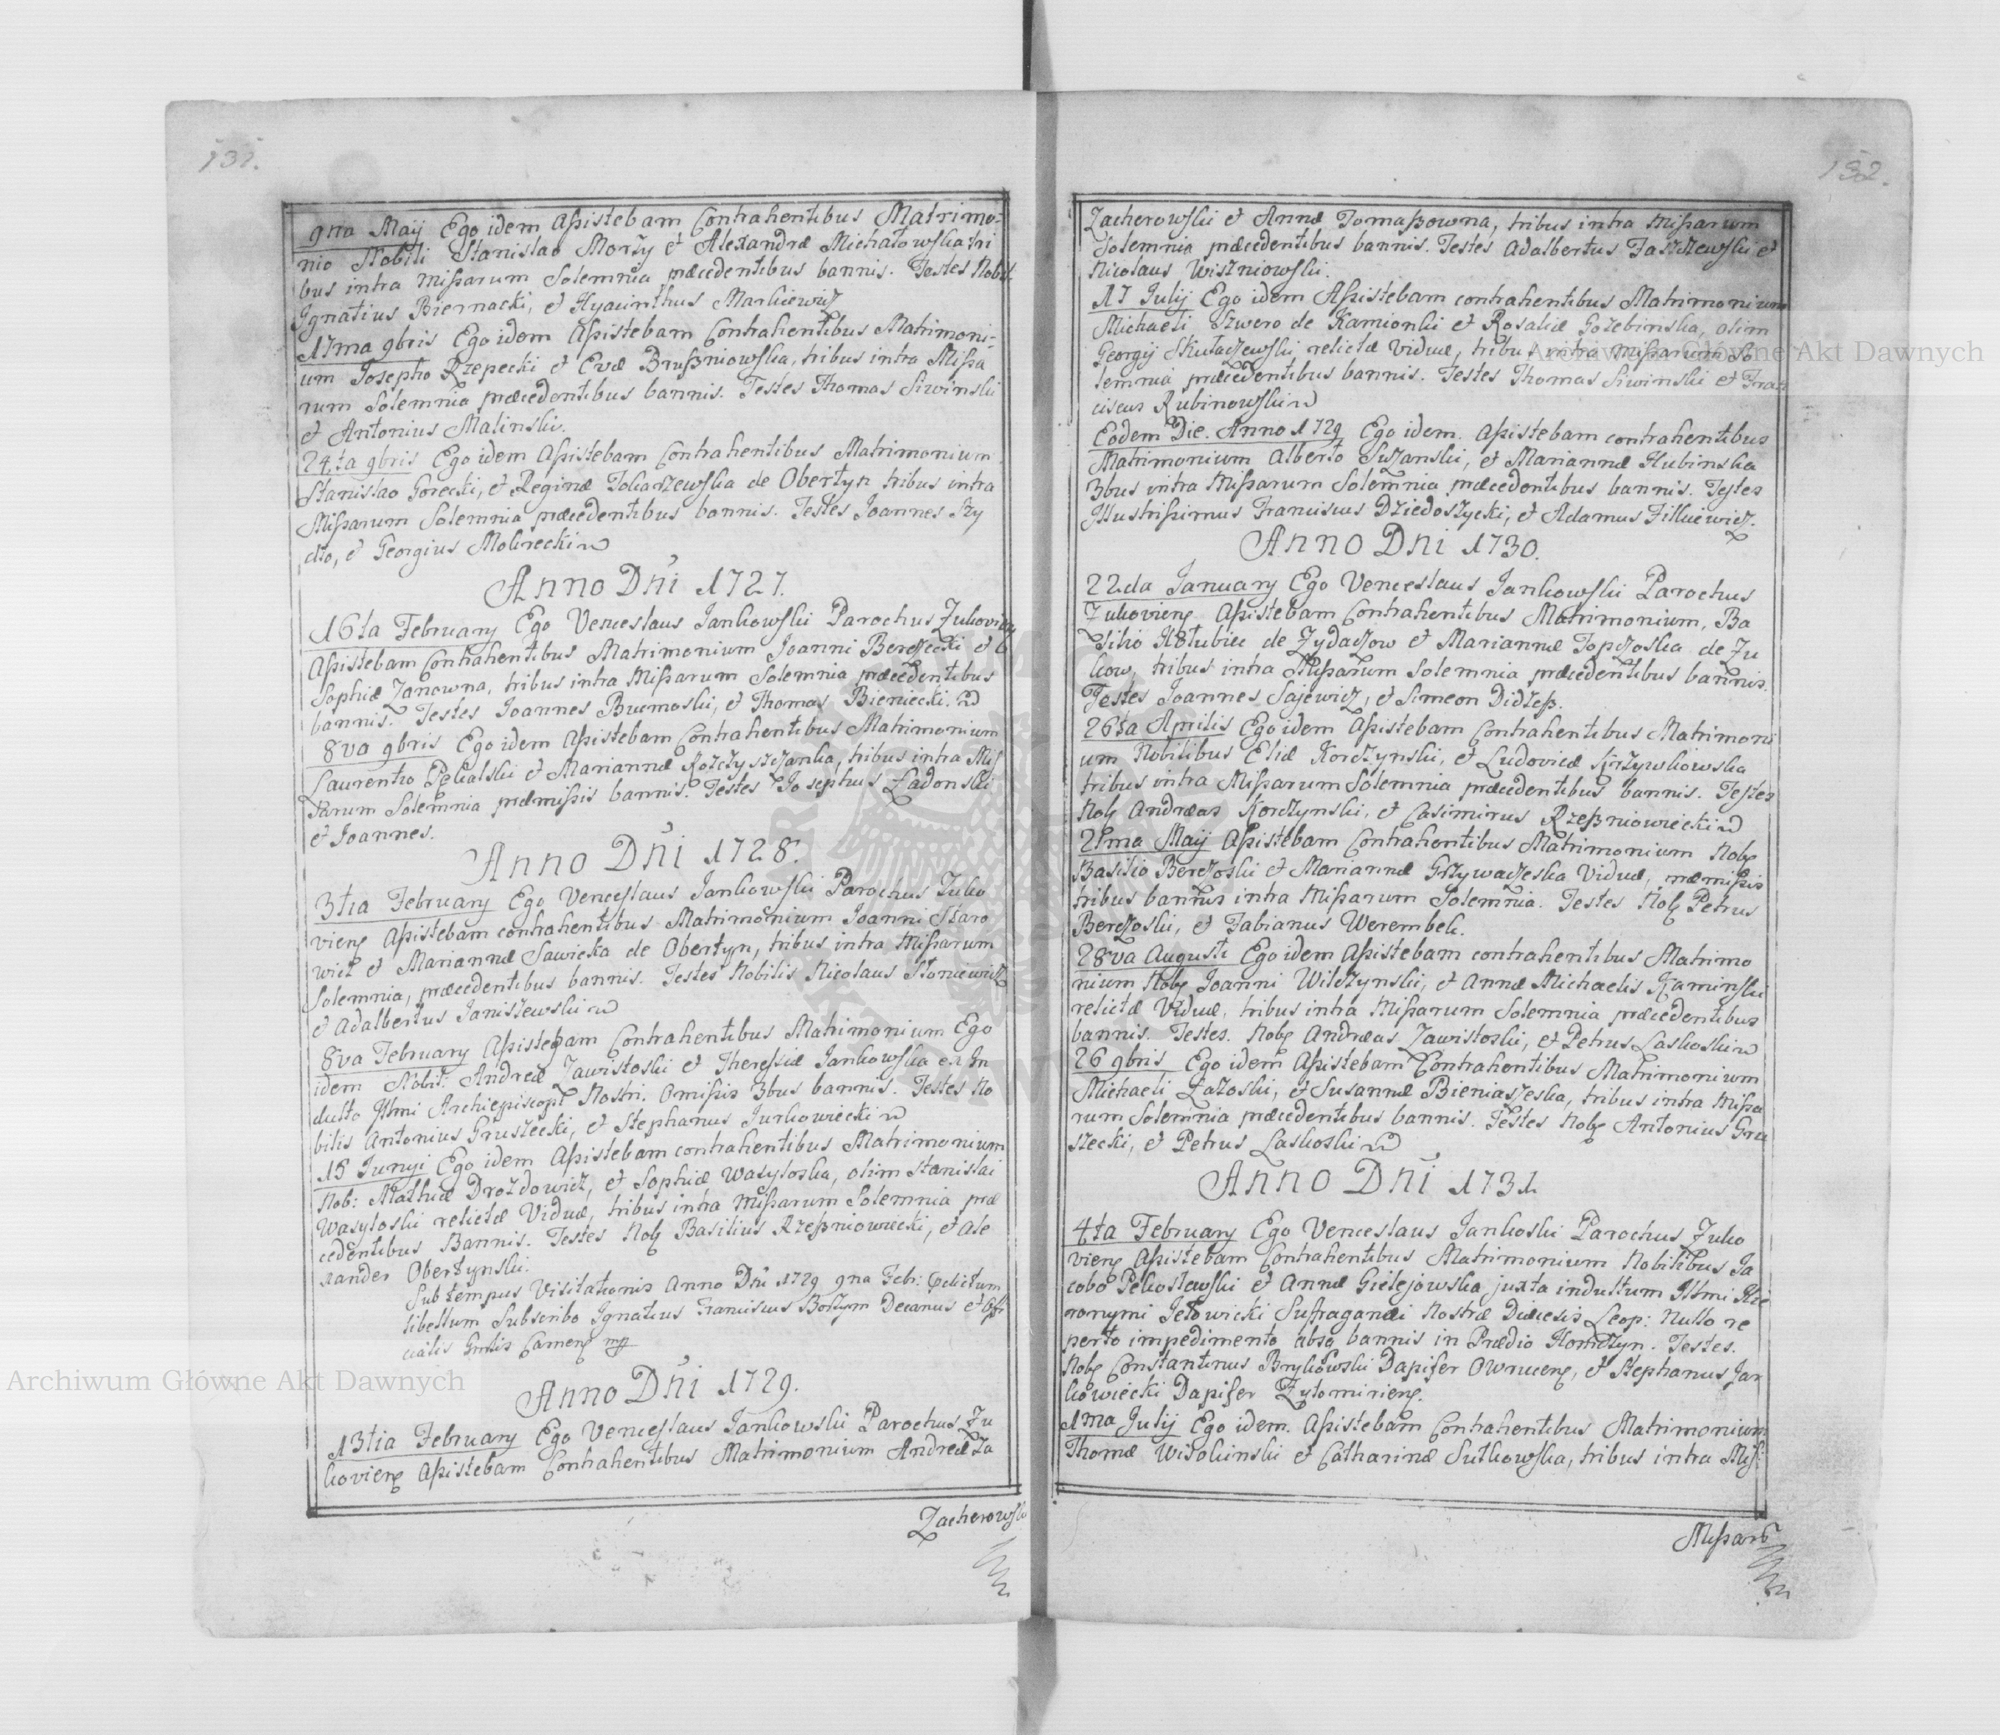 131.
9na Maij Ego idem Aſsistebam Contrahentibus Matrimo-
nio Nobili Stanislao Morży et Alexandræ Michałowska tri
bus intra Mißarum Solemnia præcedentibus bannis. Testes Nobil.
Ignatius Biernacki, et Hyacinthus Markiewicz
17ma 9bris Ego idem Aſsistebam Contrahentibus Matrimoni-
um Josepho Rzepecki et Evæ Brußniowska, tribus intra Mißa
rum Solemnia præcedentibus bannis. Testes Thomas Siwinski
et Antonius Malinski.
24ta 9bris Ego idem Aſsistebam Contrahentibus Matrimonium
Stanislao Gorecki, et Reginæ Tokarzewska de Obertyn tribus intra
Mißarum Solemnia præcedentibus bannis. Testes Joannes Szy
dło, et Georgius Mokrecki
Anno Dñi 1727.
16ta February Ego Venceslaus Jankowski Parochus Zukovieng
Aſsistebam Contrahentibus Matrimonium Joanni Berezecki et
Sophiæ Janowna, tribus intra Mißarum Solemnia præcedentibus
bannis. Testes Joannes Brumoski, et Thomas Bieniecki.
8va 9bris Ego idem Aſsistebam Contrahentibus Matrimonium
Laurentio Pekalski et Mariannæ tribus intra Miſ
ßarum Solemnia præmißis bannis. Testes Josephus Ładonski
et Joannes.
Anno Dñi 1728.
3tia February Ego Venceslaus Jankowski Parochus Zuko
vieng Aſsistebam contrahentibus Matrimonium Joanni Staro
wicz et Mariannæ Sawicka de Obertyn, tribus intra Mißarum
Solemnia, præcedentibus bannis. Testes Nobilis Nicolaus Słoniewicz
et Adalbertus Janiszewski
8va February Aſsistebam Contrahentibus Matrimonium Ego
idem Nobil: Andreæ Zawistoski et Theresiæ Jankowska ex In
dulto Illmi Archiepiscopi Nostri. Omißis 3bus bannis. Testes No
bilis Antonius Gruszecki, et Stephanus Jurkowiecki
15 Junyi Ego idem Aſsistebam contrahentibus Matrimonium
Nob: Mathiæ Drozdowicz, et Sophiæ Wasyloska, olim Stanislai
Wasyloski relictæ Viduæ, tribus intra Mißarum Solemnia præ
cedentibus Bannis. Testes Nobg Basilius Rzeßniowiecki, et Ale
xander Obertynski.
Sub tempus Visitationis Anno Dni 1729 9na Febr:
libellum Subscribo Ignatius Franciscus Bortym Decanus et Offi
cialis Gnlis Cameng mp
Anno Dñi 1729.
13tia February Ego Venceslaus Jankowski Parochus Zu
kovieng Aſsistebam Contrahentibus Matrimonium Andreæ Za
Zacherowski
132.
Zacherowski et Annæ Tomaßowna, tribus intra Mißarum
Solemnia præcedentibus bannis. Testes Adalbertus Faszczewski et
Nicolaus Wiszniowski.
17 Julij Ego idem Aſsistebam contrahentibus Matrimonium
Michaeli Szwero de Kamionki et Rosaliæ Gołebinska, olim
Georgij Skutaczewski, relictæ Viduæ, tribus intra Mißarum So
lemnia præcedentibus bannis. Testes Thomas Siwinski et Fran
ciscus Rubinowski
Eodem Die. Anno 1729 Ego idem. Aſsistebam contrahentibus
Matrimonium Alberto Suzanski, et Mariannæ Hubinska
3bus intra Mißarum Solemnia præcedentibus bannis. Testes
Illustrißimus Franciscus Dziedoszycki, et Adamus Filkiewicz.
Anno Dñi 1730.
22da January Ego Venceslaus Jankowski Parochus
Zukovieng Aſsistebam Contrahentibus Matrimonium, Ba
silio Hołubiec de Zydaczow et Mariannæ Topczoska de Zu
kow, tribus intra Mißarum Solemnia præcedentibus bannis.
Testes Joannes Sajewicz, et Simeon Didłeß.
26ta Aprilis Ego idem Aſsistebam Contrahentibus Matrimoni
um Nobilibus Eliæ Korczynski, et Ludovicæ Krzywkowska
tribus intra Mißarum Solemnia præcedentibus bannis. Testes
Nobg Andræas Korczynski, et Casimirus Rzeßniowiecki
21ma Maij Aſsistebam Contrahentibus Matrimonium Nobg
Basilio Berezoski et Mariannæ Grzywaczeska Viduæ, præmißis
tribus bannis intra Mißarum Solemnia. Testes Nobg Petrus
Berezoski, et Fabianus Werembek.
28va Augusti Ego idem Aſsistebam contrahentibus Matrimo
nium Nobg Joanni Wilczynski, et Annæ Michaelis Kaminski
relictæ Viduæ, tribus intra Mißarum Solemnia præcedentibus
bannis. Testes. Nobg Andræas Zawistoski, et Petrus Laskoski
26 9bris Ego idem Aſsistebam Contrahentibus Matrimonium
Michaeli Załoski, et Susannæ Bieniaszeska, tribus intra Mißa
rum Solemnia præcedentibus bannis. Testes Nobg Antonius Gru
szecki, et Petrus Laskoski
Anno Dñi 1731.
4ta February Ego Venceslaus Jankoski Parochus Zuko
vieng Aſsistebam Contrahentibus Matrimonium Nobilibus Ja
cobo Pekoslewski et Annæ Gielejowska juxta indultum Illmi Hie
ronymi Jełowicki Suffraganei Nostræ Diæcesis Leop: Nullo re
perto impedimento absq bannis in Prædio Homczyn. Testes.
Nobg Constantinus Brykowski Dapifer Owruceng, et Stephanus Jar
kowiecki Dapifer Zytomirieng.
1ma Julij Ego idem. Aſsistebam Contrahentibus Matrimonium
Thomæ Wisokinski et Catharinæ Sutkowska, tribus intra Miſ:
Mißarū
Archiwum Główne Akt Dawnych
Archiwum Główne Akt Dawnych